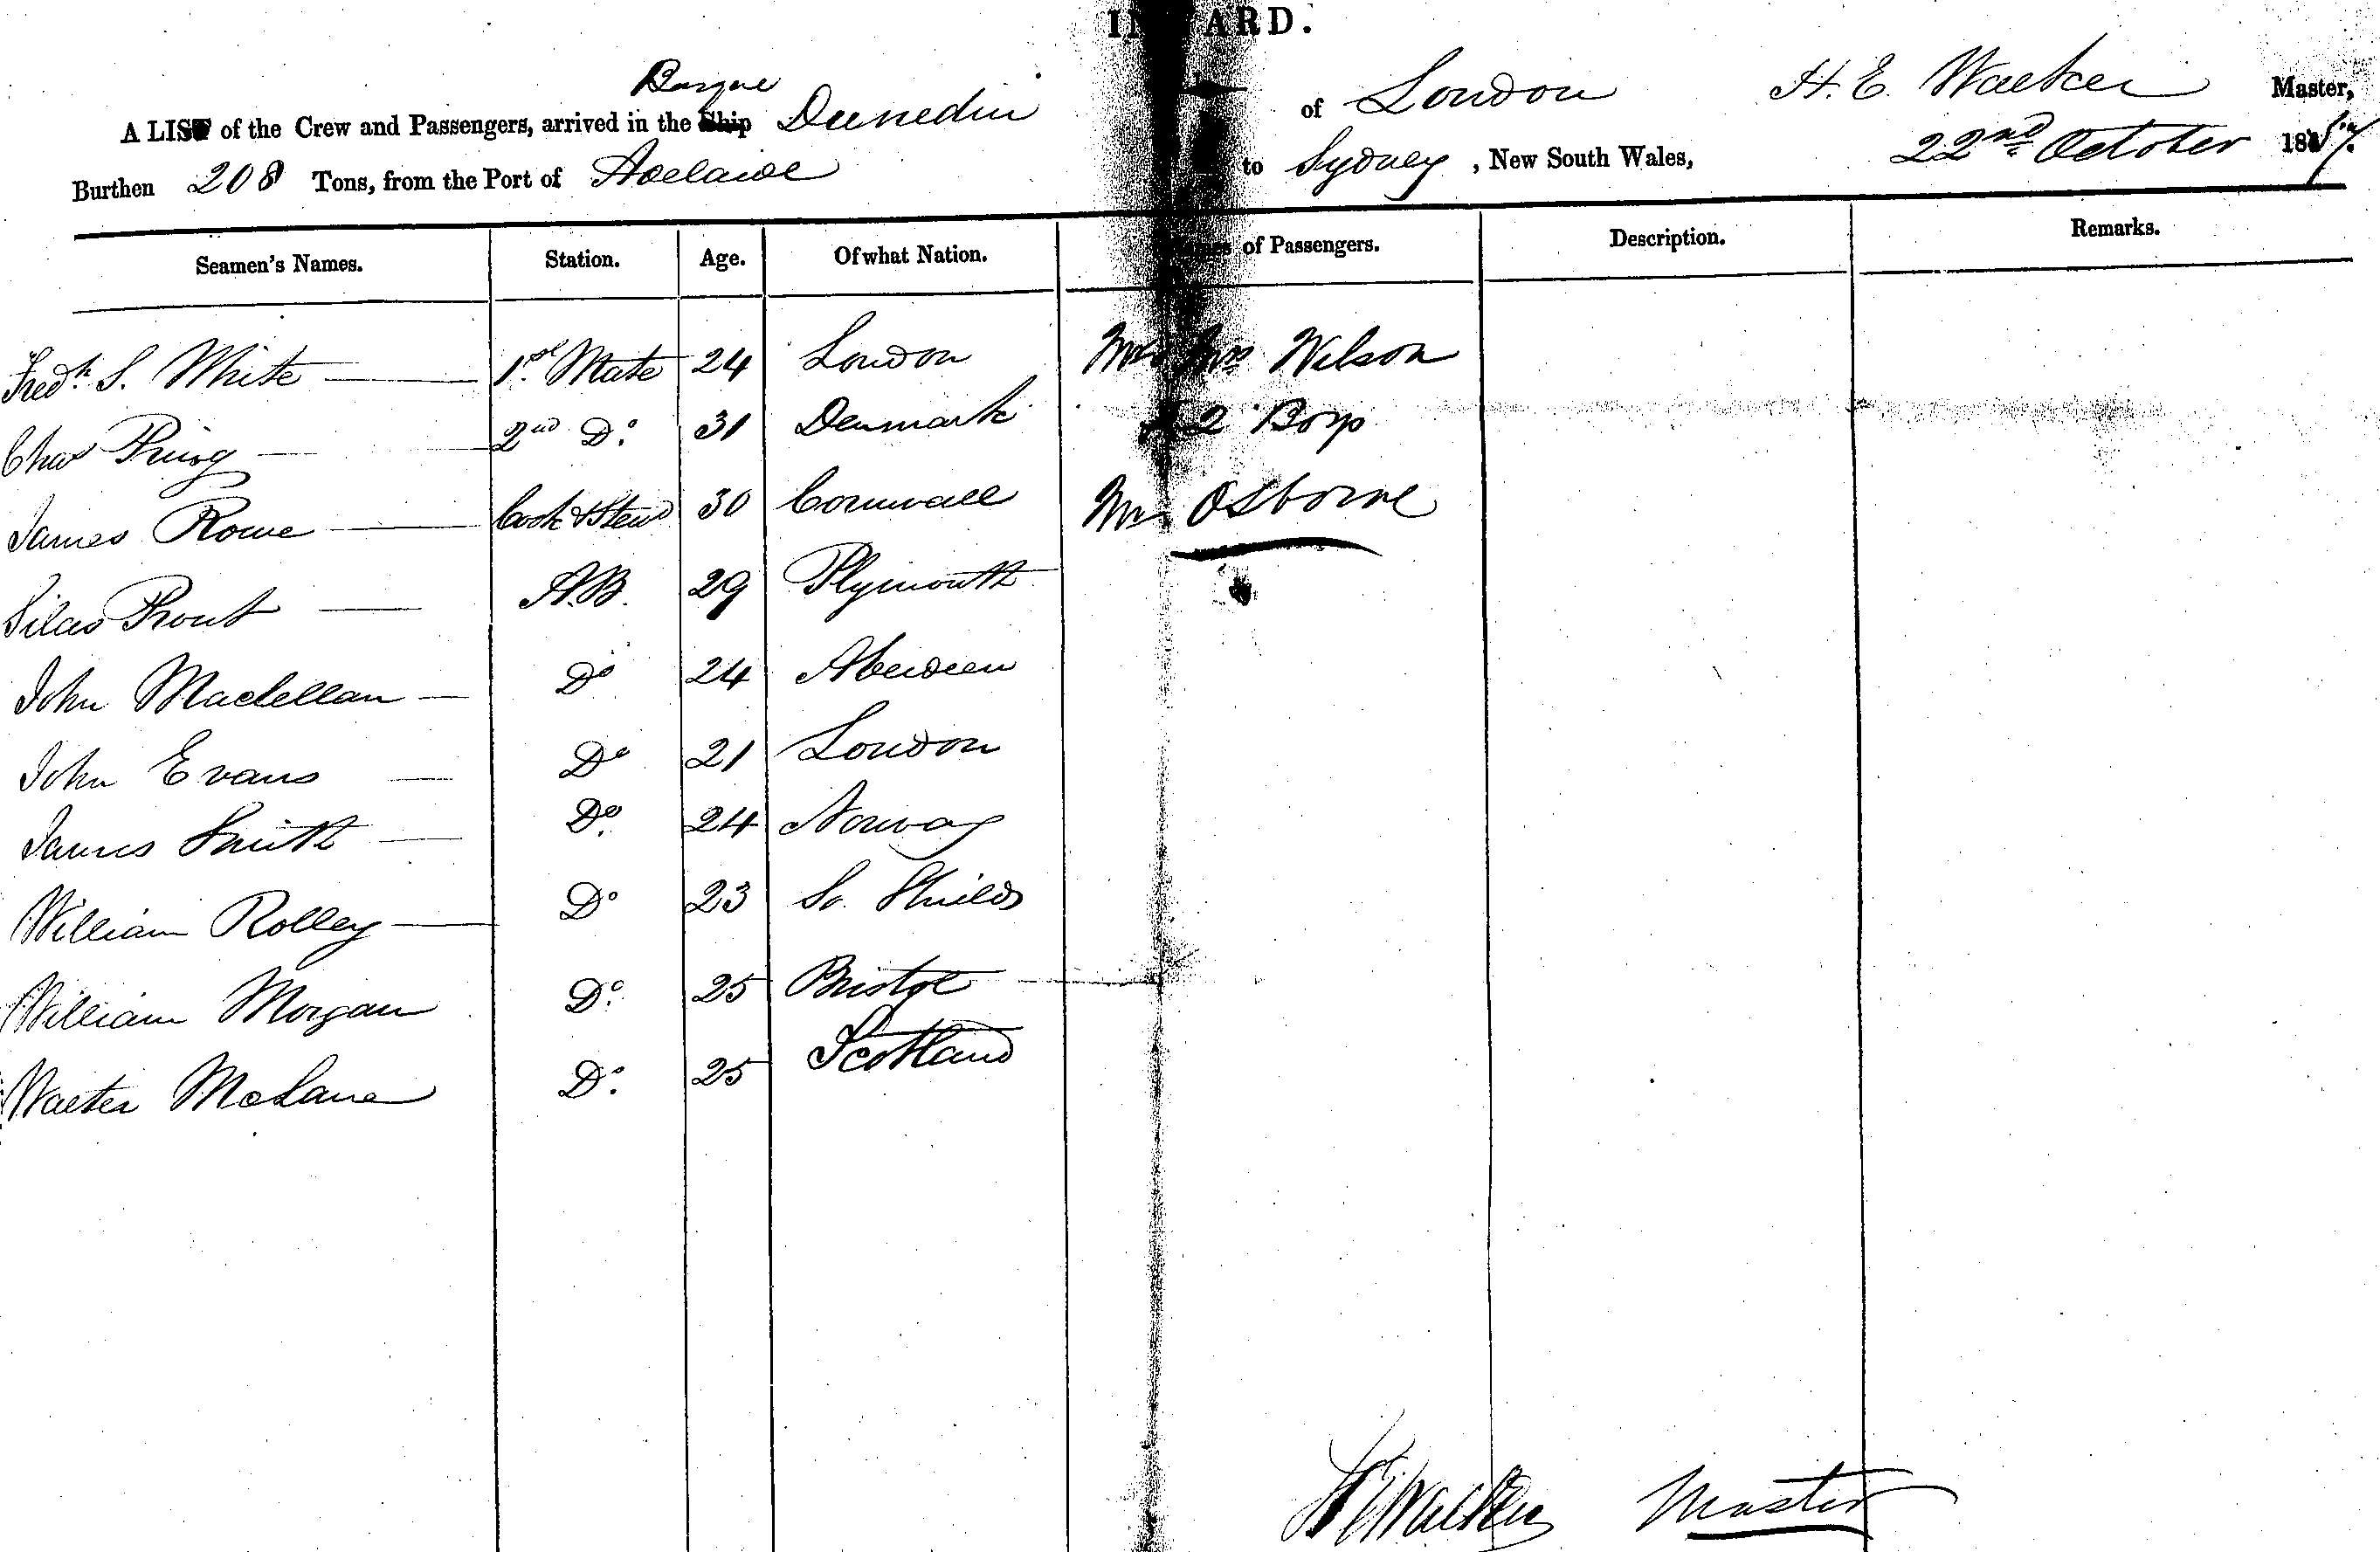 INWARD.
Barque
A LIST of the Crew and Passengers, arrived in the Ship Dunedin of London H. E. Walker Master,
Burthen 208 Tons, from the Port of Adelaide to Sydney, New South Wales, 22nd October 1857.
Seamen's Names. Station. Age. Of what Nation. Names of Passengers. Description. Remarks.
Fredk S. White 1st Mate 24 London Mr Mrs Wilson
Chas 2nd Do 31 Denmark 2 Boys
James Rowe Cook & Stewd 30 Cornwall Mr Osborne
Silas Prout A.B. 29 Plymouth
John Maclellan Do 24 Aberdeen
John Evans Do 21 London
James Smith Do 24 Norway
William Rolley Do 23 So. Shields
William Morgan Do 25 Bristol
Walter McLane Do 25 Scotland
H E Walker Master